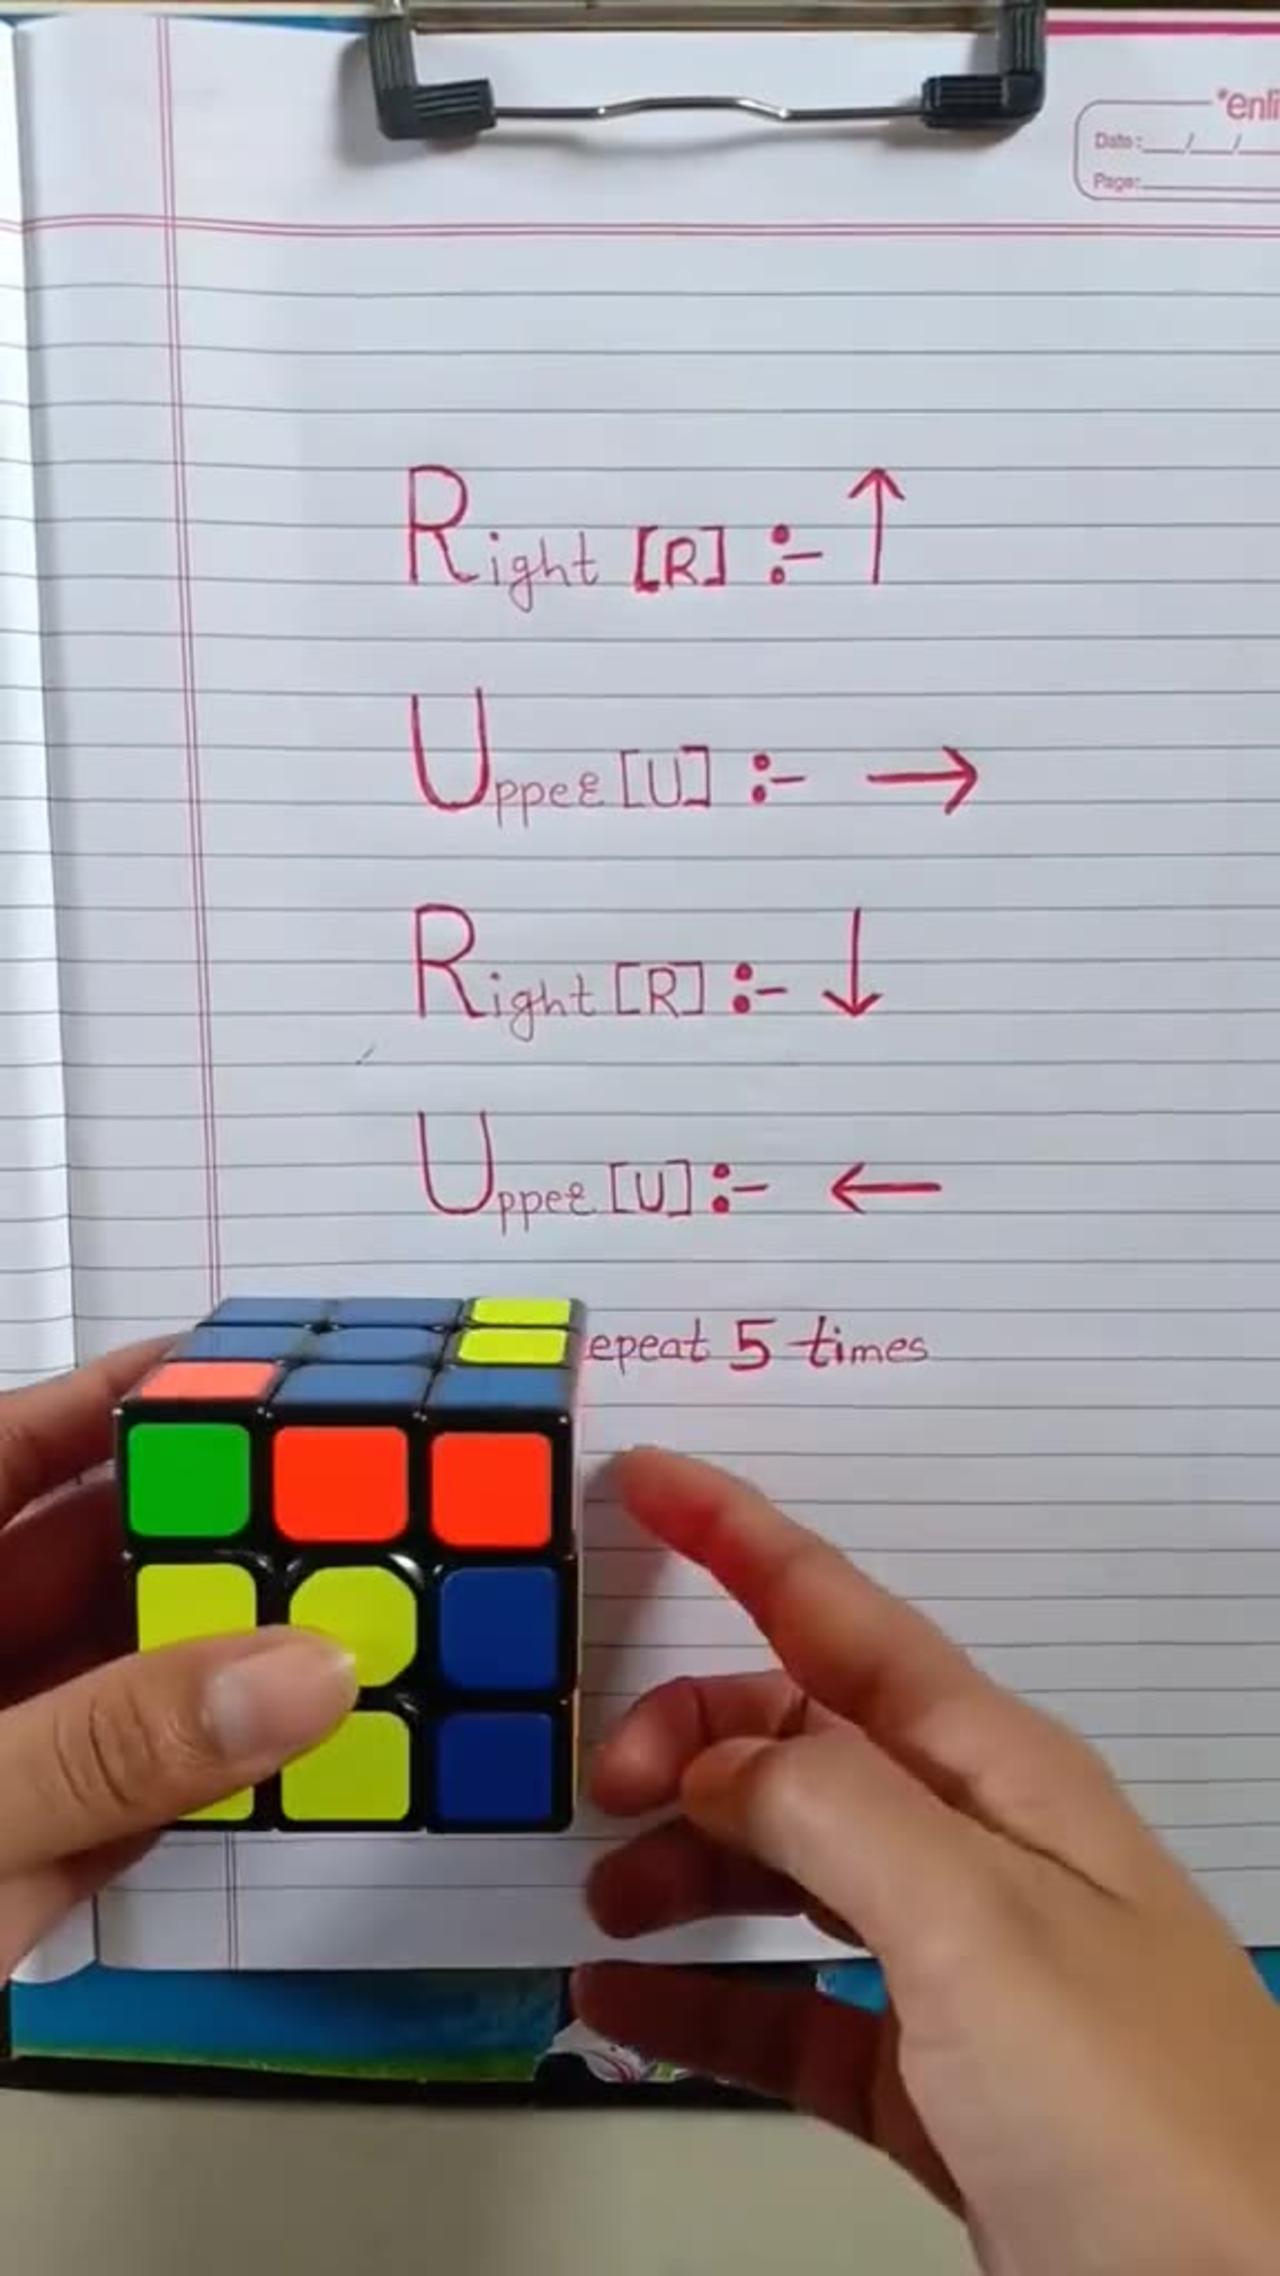 *enli
Date:___/___/___
Page:
Right [R] :- ↑
Upper [U] :- →
Right [R] :- ↓
Upper [U] :- ←
epeat 5 times